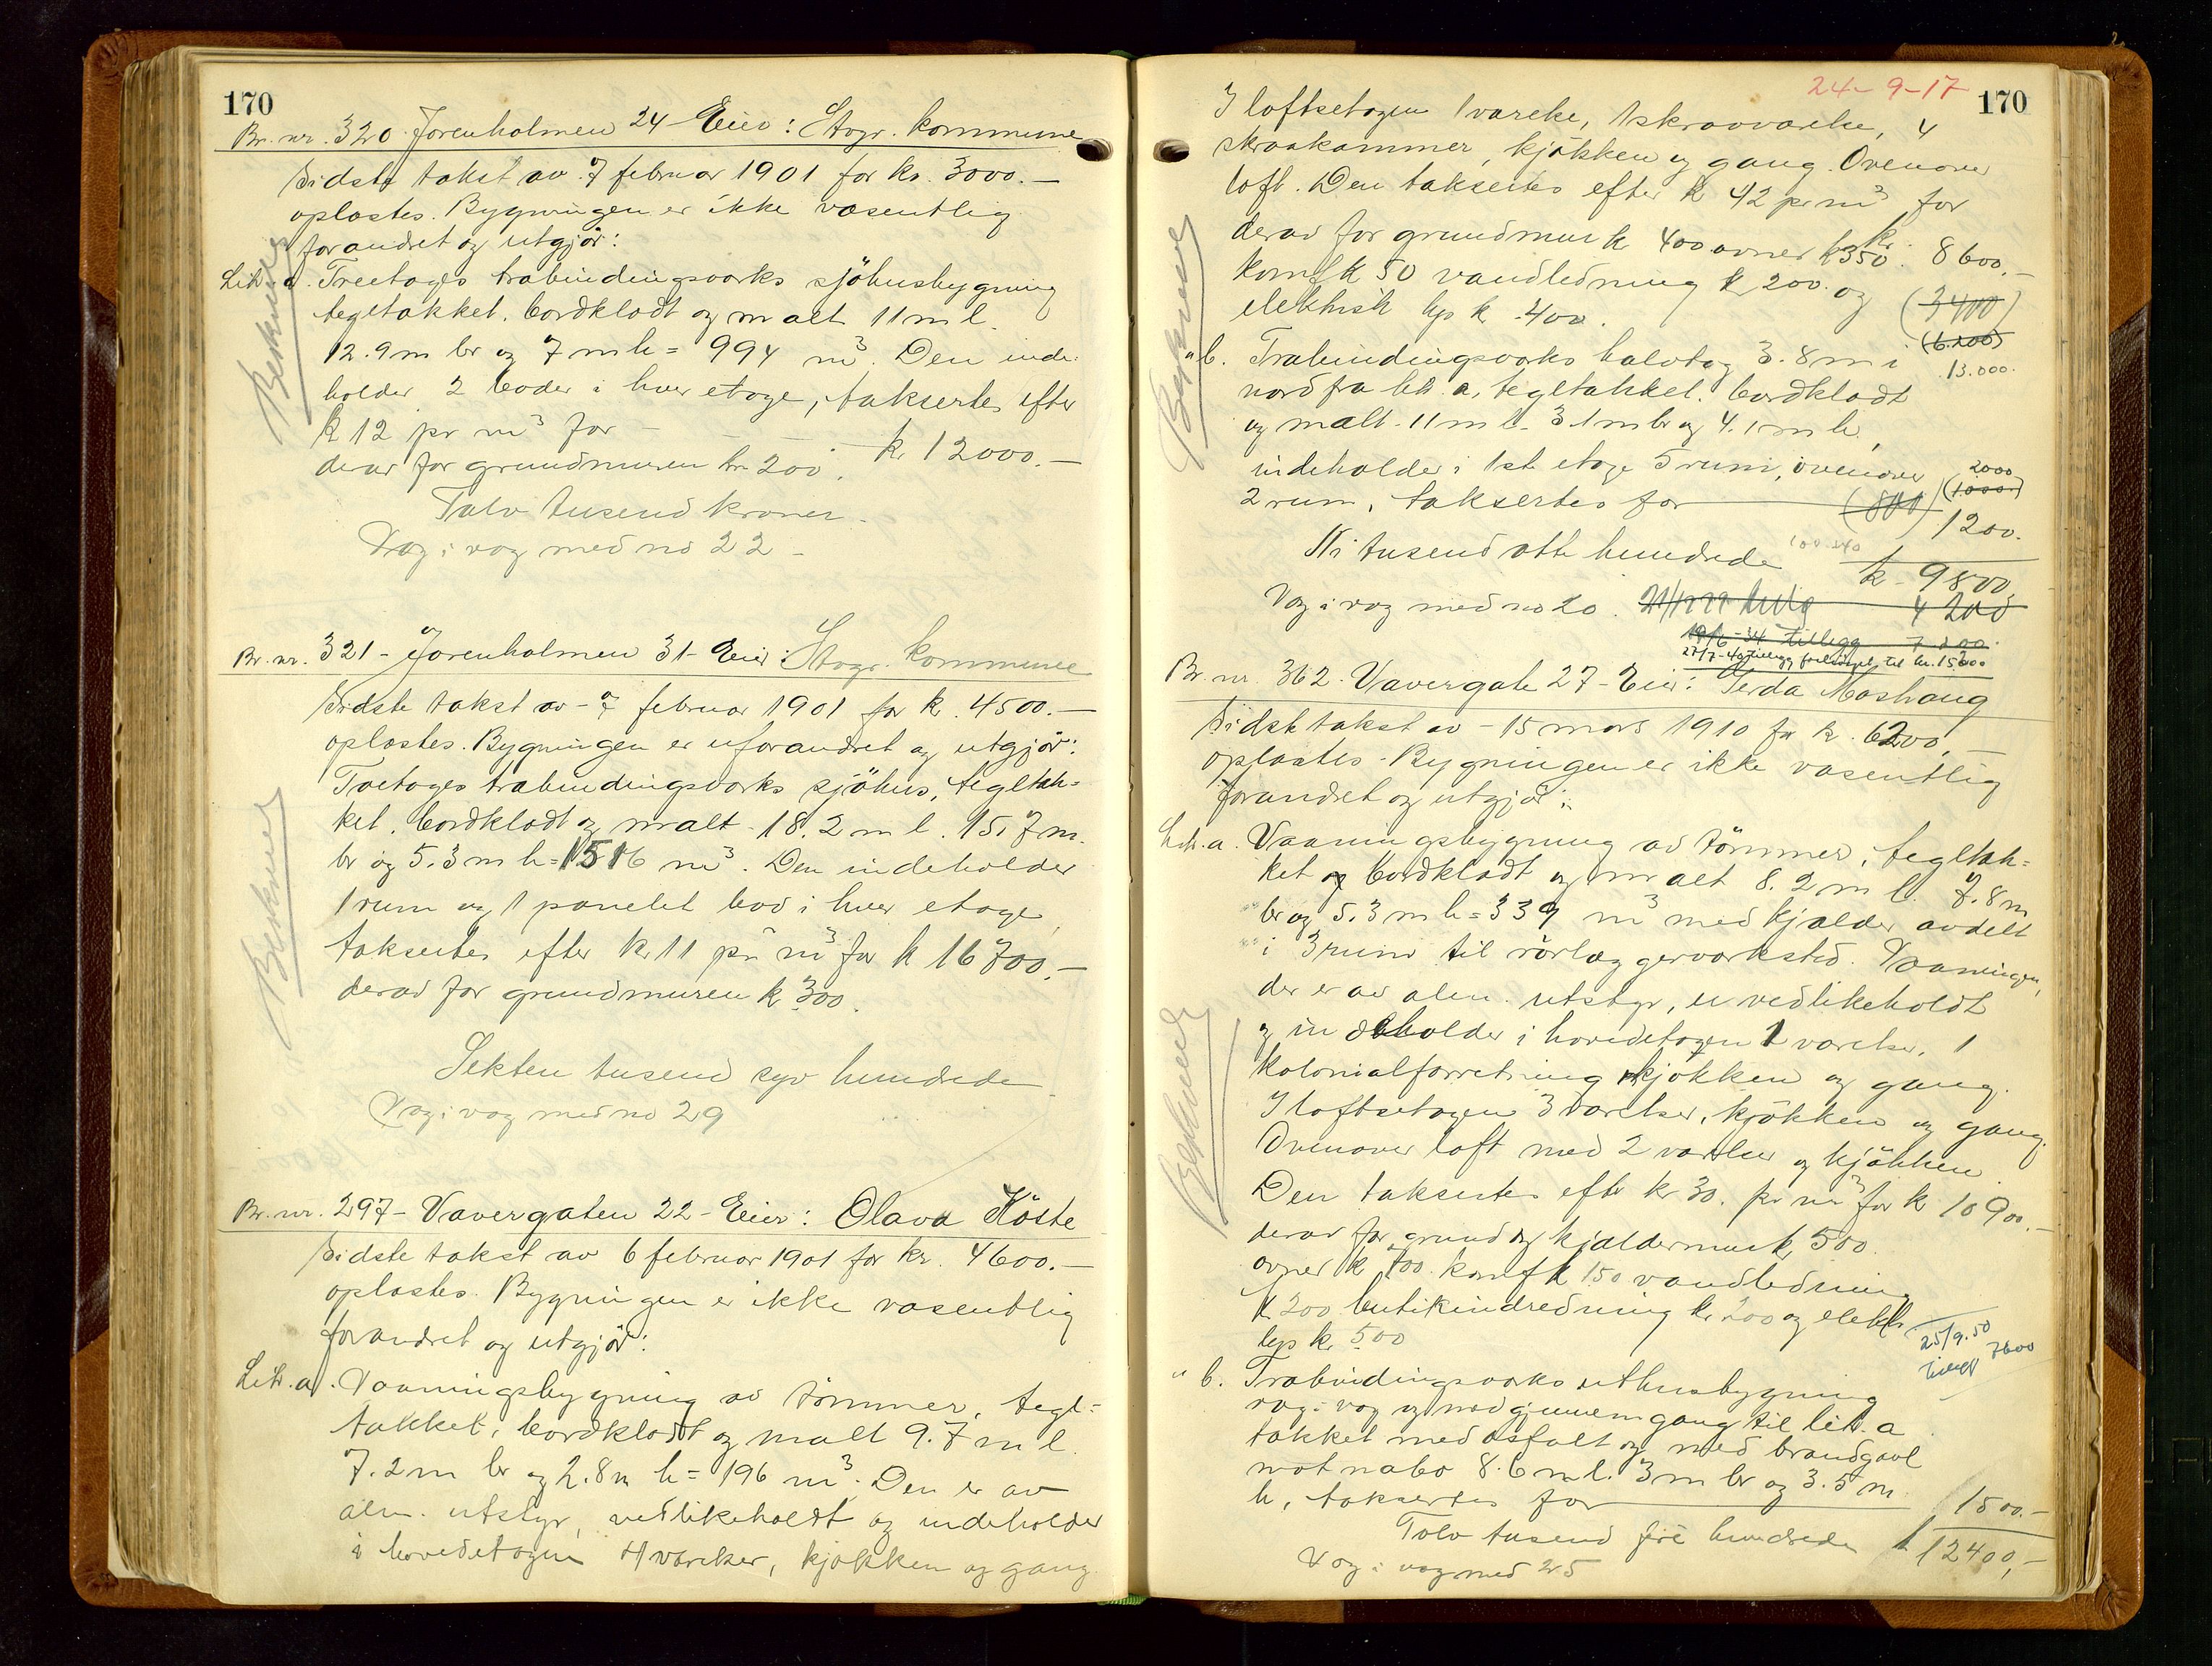 170
Br. nr. 320 Jorenholmen 24 Eier: Stvgr. kommune
Sidste takst av 7 februar 1901 for kr. 3000.—
oplæstes. Bygningen er ikke væsentlig
forandret og utgjör:
Litr. a. Treetages træbindingsværks sjöhusbygning
tegltækket, bordklædt og malt 11 m l.
12.9 m br og 7 m h = 994 m³. Den inde-
holder 2 boder i hver etage, taksertes efter
k 12 pr m³ for — kr 12000.—
derav for grundmuren kr 200.
Tolv tusend kroner.
Væg i væg med no 22 –
Beskrevet
Br. nr. 321 – Jorenholmen 31 – Eier: Stvgr. kommune
Sidste takst av – 7 februar 1901 for k. 4500.—
oplæstes. Bygningen er uforandret og utgjör:
Toetages træbindingsværks sjöhus, tegltæk-
ket, bordklædt og malt 18.2 m l. 15.7 m
br og 5.3 m h = 1516 m³. Den indeholder
1 rum og 1 panelet bod i hver etage,
taksertes efter kr 11 pr m³ for k 16700.—
derav for grundmuren k 300.
Seksten tusend syv hundrede
Væg i væg med no 29
Br. nr. 297 – Vævergaten 22 – Eier: Olava Höste
Sidste takst av 6 februar 1901 for kr. 4600.—
oplæstes. Bygningen er ikke væsentlig
forandret og utgjör:
Litr. a. Vaaningsbygning av tömmer, tegl-
tækket, bordklædt og malt 9.7 m l.
7.2 m br og 2.8 m h = 196 m³. Den er av
alm. utstyr, vedlikeholdt og indeholder
i hovedetagen 4 værelser, kjøkken og gang.
24-9-17
170
I loftsetagen 1 værelse, 1 skraaværelse, 4
skraakammer, kjökken og gang. Ovenover
loft. Den taksertes efter k 42 pr m³ for
kr. 8600.—
derav for grundmur k 400 ovner k 350
komf k 50 vandledning k 200 og
(3400)
elektrisk lys k 400.
(6.200)
" b. Træbindingsværks halvtag 3.8 m i
13.000.
nord fra litr. a, tegltækket, bordklædt
og malt 11 m l. 3.1 m br og 4.1 m h,
indeholder i 1ste etage 5 rum, ovenover
2000
(1000)
2 rum, taksertes for (800) 1200.
Ni tusend otte hundrede k 9800
Væg i væg med no 20. 4200
19/6-34 tillegg 7200.
Br. nr. 362 Vævergate 27 – Eier: Gerda Moshaug
Sidste takst av – 15 mars 1910 for k. 6200.—
oplæstes. Bygningen er ikke væsentlig
forandret og utgjör:
Litr. a. Vaaningsbygning av tömmer, tegltæk-
ket og bordklædt og malt 8.2 m l. 7.8 m
br og 5.3 m h = 339 m³ med kjælder avdelt
i 3 rum til rörlæggerværksted. Vaaningen,
der er av alm. utstyr, er vedlikeholdt
og indeholder i hovedetagen 1 værelse, 1
kolonialforretning kjökken og gang.
I loftsetagen 3 værelser, kjökken og gang.
Ovenover loft med 2 værelser og kjökken
Den taksertes efter kr 30. pr m³ for k 10900.—
derav for grund og kjældermur k 500
ovner k 400 komf k 150 vandledning
k 200 butikindredning k 200 og elektr.
lys kr 500
25/9.50
tillegg 7600
" b. Træbindingsværks uthusbygning
væg i væg og med gjennemgang til litr. a
tækket med asfalt og med brandgavl
mot nabo 8.6 m l. 3 m br og 3.5 m
h, taksertes for — 1500.—
Tolv tusend fire hundrede k 12400,—
Væg i væg med 25